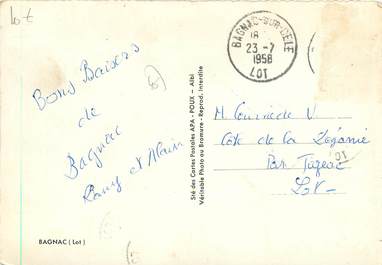 Lot
BAGNAC-SUR-CELE
18
23-7
1958
LOT
Bons Baisers
de
Bagnac
et Alain
Sté des Cartes Postales APA - POUX - Albi
Véritable Photo au Bromure - Reprod. interdite
M
Côte de la
Par Figeac
Lot
LOT
BAGNAC (Lot)